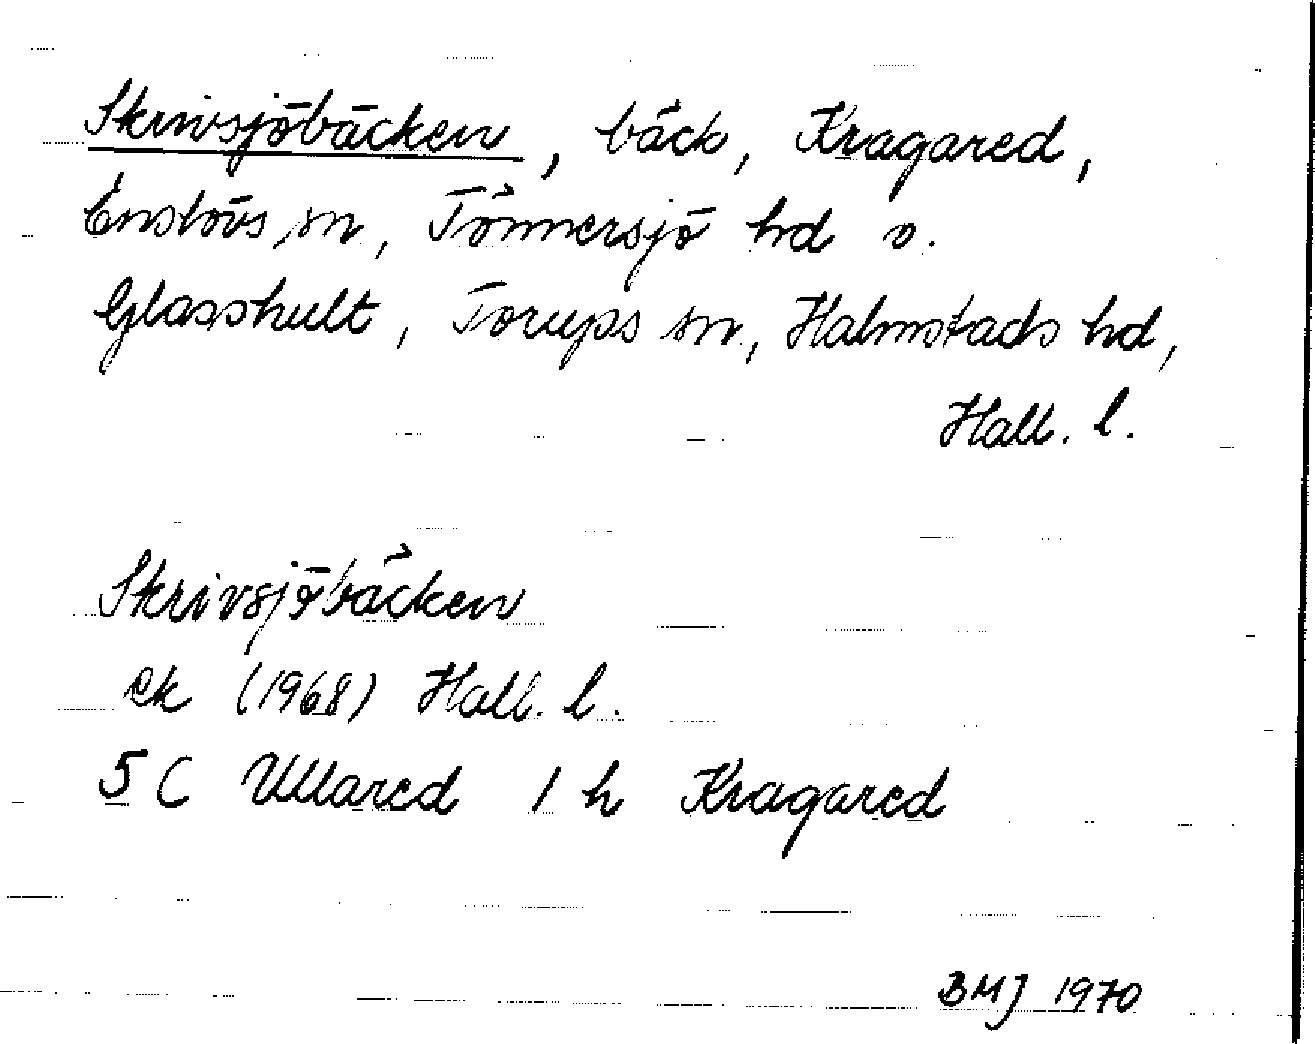 Skrivsjöbäcken, bäck, Kragared,
Enslövs sn, Tönnersjö hd o.
Glasshult, Torups sn, Halmstads hd,
Hall. l.
Skrivsjöbäcken
ek (1968) Hall. l.
5 C Ullared 1 h Kragared
BMJ 1970